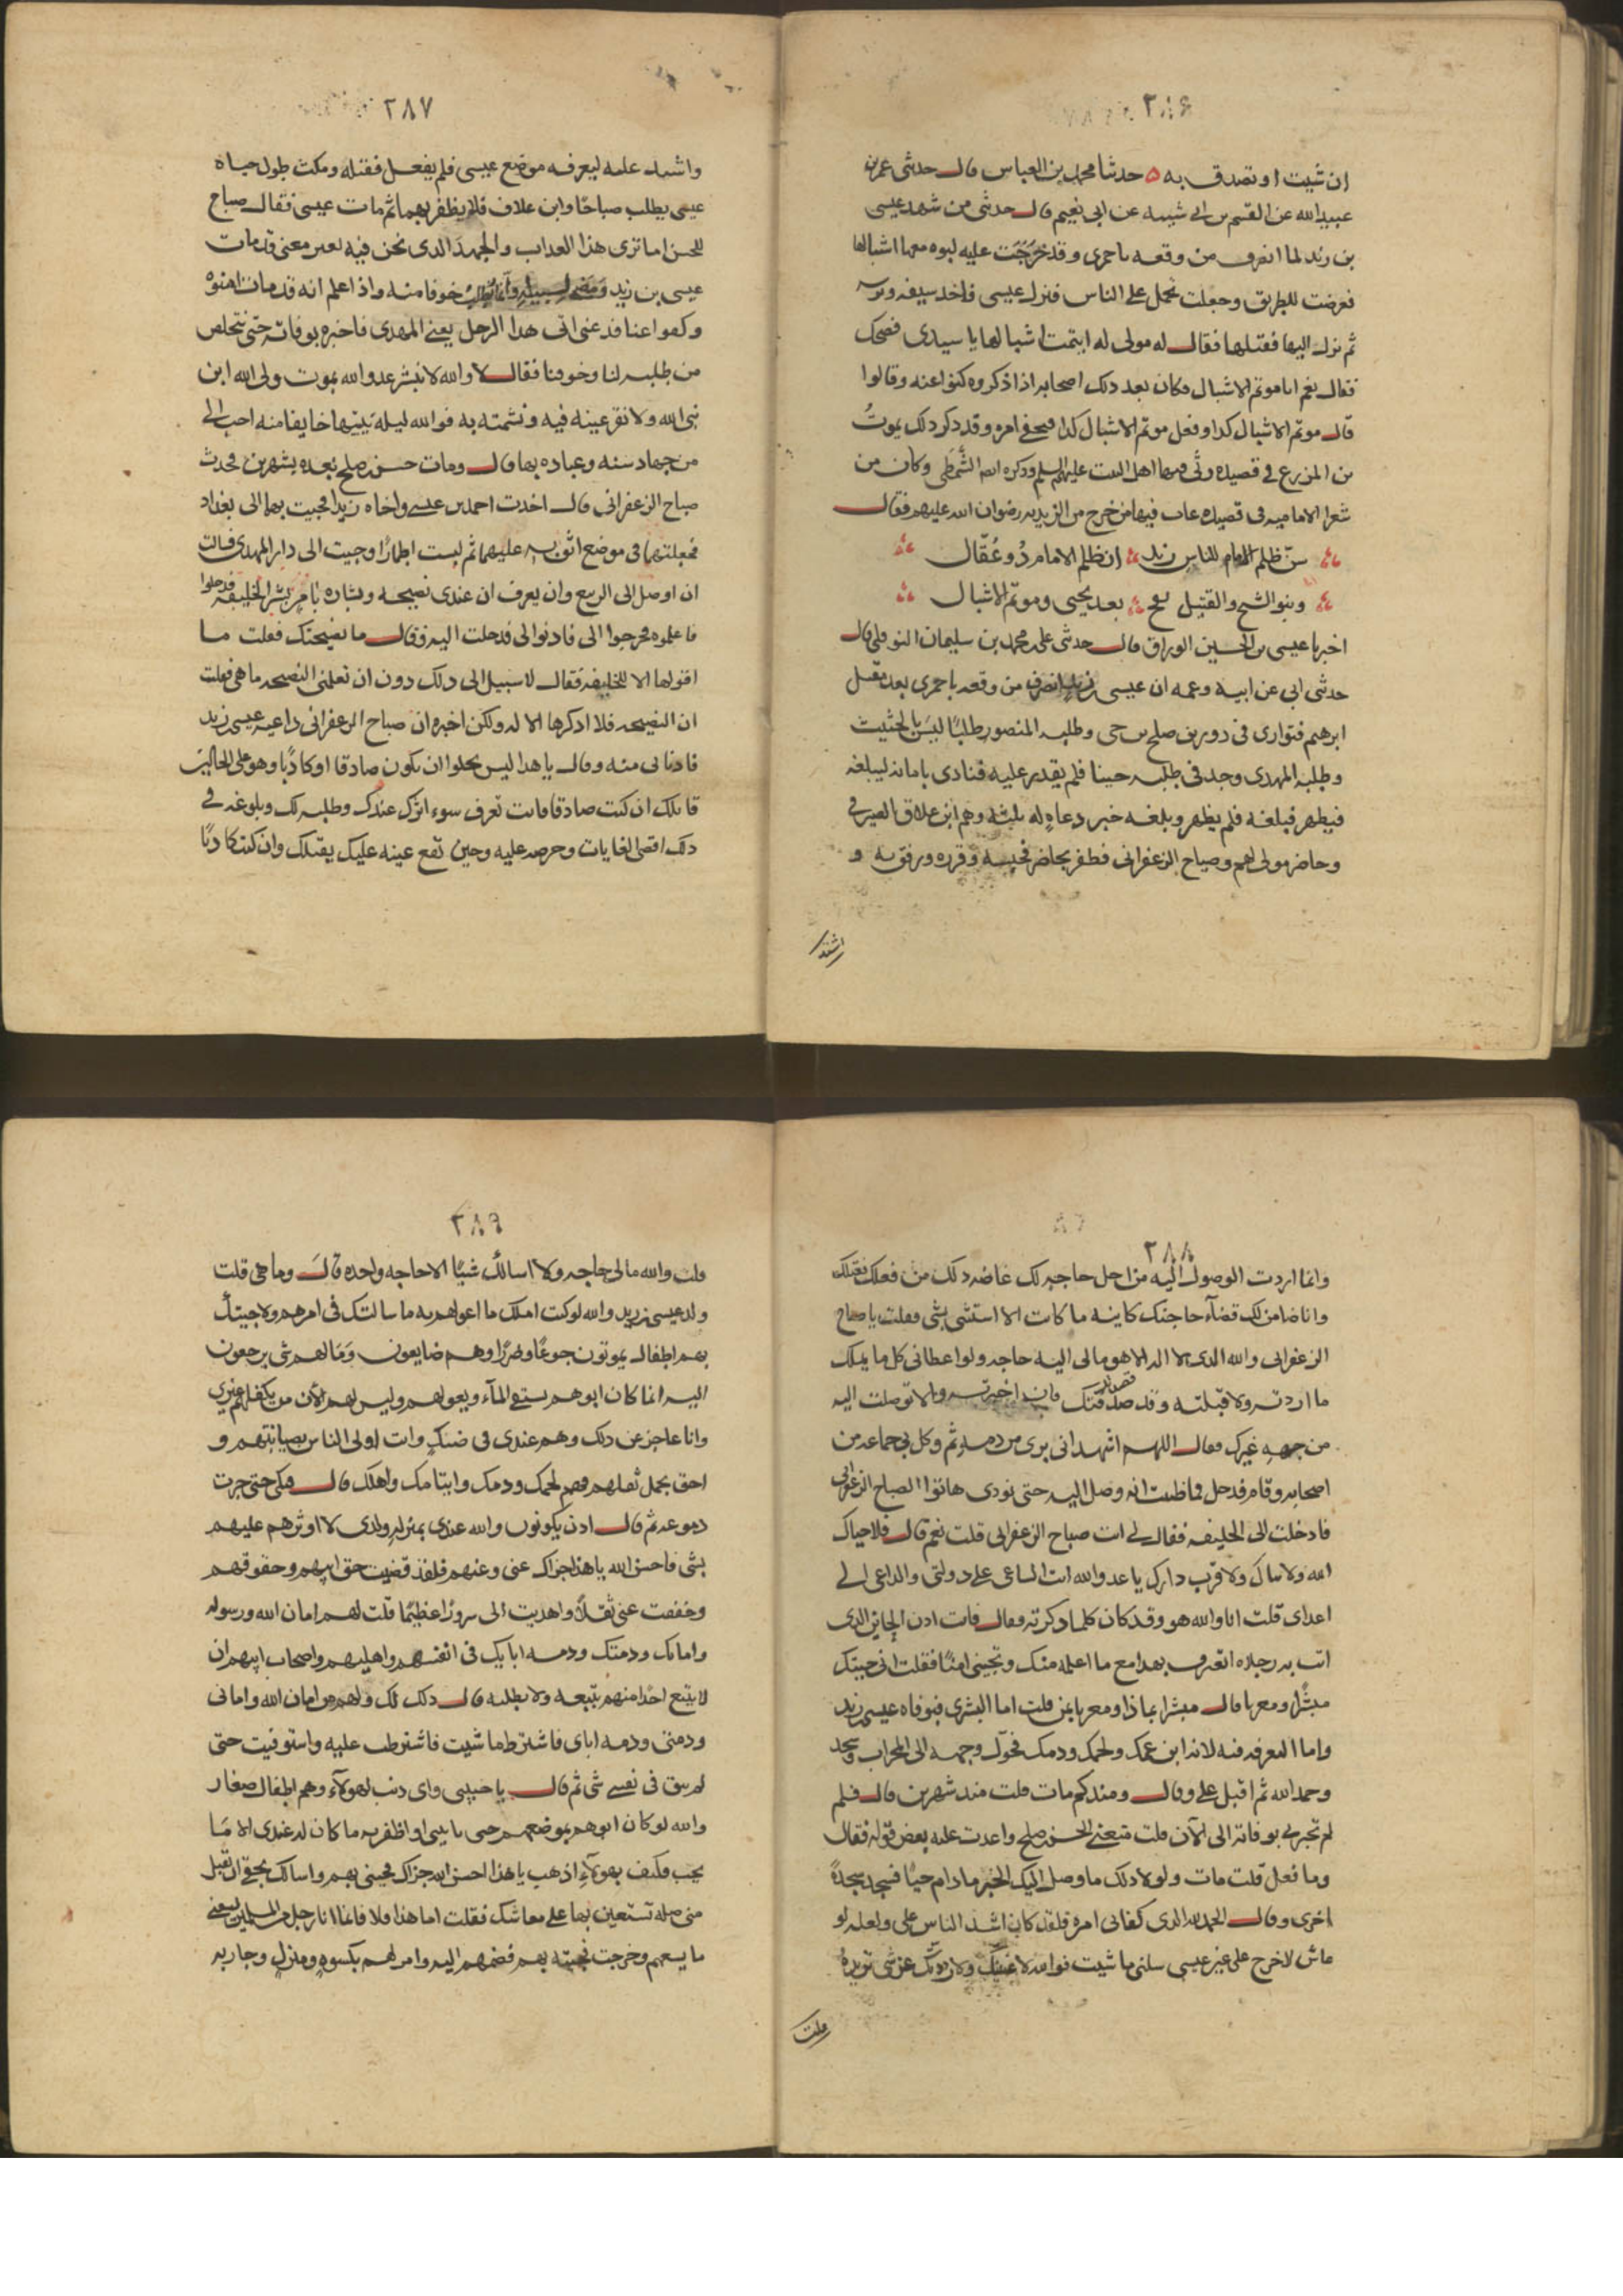 ٢٨٦
ان شيت او تصدق به ه حدثنا محمد بن العباس قال حدثنى عمر بن
عبيد الله عن القسم بن ابى شيبه عن ابى نعيم قال حدثنى من شهد عيسى
بن زيد لما انصرف من وقعه باخمرى وقد خرجت عليه لبوه معها اشبالها
فعرضت للطريق وجعلت تحمل على الناس فنزل عيسى فاخد سيفه وترسه
ثم نزل اليها فقتلها فقال له مولى له ايتمت اشبالها يا سيدى فضحك
فقال نعم انا موتم الاشبال فكان بعد دلك اصحابه اذا ذكروه كنوا عنه وقالوا
قال موتم الاشبال كدا وفعل موتم الاشبال كدا فيخفى امره وقد ذكر دلك يموت
بن المزرع فى قصيده رثى فيها اهل البيت عليهم السلم ودكره الشمطى وكان من
شعرا الاماميه فى قصيده عاب فيها من خرج من الزيديه رضوان الله عليهم فقال
سن ظلم الامام للناس زيد ان ظلم الامام ذو عقال
وبنو الشيخ والقتيل بفخ بعد يحيى وموتم الاشبال
اخبرنا عيسى بن الحسين الوراق قال حدثنى على بن محمد بن سليمان النوفلى قال
حدثنى ابى عن ابيه وعمه ان عيسى بن زيد انصرف من وقعه باخمرى بعد مقتل
ابرهيم فتوارى فى دور بن صلح بن حى وطلبه المنصور طلبًا ليس بالحثيث
وطلبه المهدى وجد فى طلبه حينا فلم يقدر عليه فنادى بامانه ليبلغه
فيظهر فبلغه فلم يظهر وبلغه خبر دعاةٍ له ثلثه وهم ابن علاق الصيرفى
وحاضر مولى لهم وصباح الزعفرانى فظفر بحاضر فحبسه وقرره ورفق به و
اشتد
٢٨٧
واشتد عليه ليعرفه موضع عيسى فلم يفعل فقتله ومكث طول حياه
عيسى يطلب صباحًا وابن علاق فلا يظفر بهما ثم مات عيسى فقال صباح
للحسن اما ترى هذا العداب والجهد الدى نحن فيه لغير معنى قد مات
عيسى بن زيد ومضى لسبيله وانما نطلب خوفا منه واذا علم انه قد مات امنوه
وكفوا عنا فدعنى اتى هدا الرجل يعنى المهدى فاخبره بوفاته حتى نتخلص
من طلبه لنا وخوفنا فقال لا والله لا نبشر عدو الله بموت ولى الله ابن
نبى الله ولا نقر عينه فيه ونشمته به فوالله ليله يبيتها خايفا منه احب الى
من جهاد سنه وعباده بها قال ومات حسن بن صلح بعده بشهرين فحدث
صباح الزعفرانى قال اخدت احمد بن عيسى واخاه زيدا فجيت بهما الى بغداد
فجعلتهما فى موضع اثق به عليهما ثم لبست اطمارًا وجيت الى دار المهدى فسالت
ان اوصل الى الربيع وان يعرف ان عندى نصيحه وبشاره بامر يسر الخليفه فدخلوا
فاعلموه فخرجوا الى فادنوا لى فدخلت اليه فقال ما نصيحتك فقلت ما
اقولها الا للخليفه فقال لا سبيل الى دلك دون ان تعلمنى النصيحه ما هى فقلت
ان النصيحه فلا ادكرها الا له ولكن اخبره ان صباح الزعفرانى داعيه عيسى بن زيد
فادنانى منه وقال يا هدا ليس يخلوا ان تكون صادقا او كاذبًا وهو على الحالين
قاتلك ان كنت صادقا فانت تعرف سوء اثرك عندك وطلبه لك وبلوغه فى
دلك اقصى الغايات وحرصه عليه وحين تقع عينه عليك يقتلك وان كنت كاذبًا
٢٨٨
وانما اردت الوصول اليه من اجل حاجه لك غاضه دلك من فعلك فقتلك
وانا ضامن لك قضآء حاجتك كاينه ما كانت الا استثنى بشى فقلت يا صباح
الزعفرانى والله الدى لا اله الا هو مالى اليه حاجه ولو اعطانى كل ما يملك
ما اردته ولا قبلته وقد صدقتك فان اخبرته والا توصلت اليه
من جهه غيرك فقال اللهم اشهد انى برى من دمه ثم وكل بى جماعه من
اصحابه وقام فدخل فما ظننت انه وصل اليه حتى نودى هاتوا الصباح الزعفرانى
فادخلت الى الخليفه فقال لى انت صباح الزعفرانى قلت نعم قال فلا حياك
الله ولا بياك ولا قرب دارك يا عدو الله انت الساعى على دولتى والداعى الى
اعداى قلت انا والله هو وقد كان كلما دكرته فقال فانت ادن الخاين الدى
اتت به رجلاه اتعترف بهدا مع ما اعلمه منك وتجينى امنًا فقلت انى جيتك
مبشرًا ومعزيا قال مبشرا بماذا ومعزيا بمن قلت اما البشرى فبوفاه عيسى بن زيد
واما التعزيه ففيه لانه ابن عمك ولحمك ودمك فحول وجهه الى المحراب وسجد
وحمد الله ثم اقبل على وقال ومند كم مات قلت مند شهرين قال فلم
لم تخبرنى بوفاته الى الآن قلت منعنى الحسن بن صلح واعدت عليه بعض قوله فقال
وما فعل قلت مات ولولا دلك ما وصل اليك الخبر ما دام حيًا فسجد سجدةً
اخرى وقال الحمد لله الدى كفانى امره فلقد كان اشد الناس على ولعله لو
عاش لاخرج على غير عيسى سلنى ما شيت فوالله لاغنينك ولا رددتك عن شى تريده
قلت
٢٨٩
قلت والله مالى حاجه ولا اسالك شيًا الا حاجه واحده قال وما هى قلت
ولد عيسى بن زيد والله لو كنت املك ما اعولهم به ما سالتك فى امرهم ولا جيتك
بهم اطفال يموتون جوعًا وضرًا وهم ضايعون وما لهم شى يرجعون
اليه انما كان ابوهم يستقى المآء ويعولهم وليس لهم الآن من يكفلهم غيرى
وانا عاجز عن دلك وهم عندى فى ضنك وانت اولى الناس بصيانتهم و
احق بحمل ثقلهم فهم لحمك ودمك وايتامك واهلك قال فبكى حتى جرت
دموعه ثم قال ادن يكونون والله عندى بمنزله ولدى لا اوثرهم عليهم
بشى فاحسن الله يا هذا جزاك عنى وعنهم فلقد قضيت حق ابيهم وحقوقهم
وخففت عنى ثقلًا واهديت الى سرورًا عظيمًا قلت لهم امان الله ورسوله
وامانك ودمتك ودمه ابايك فى انفسهم واهليهم واصحاب ابيهم ان
لا يتبع احدًا منهم بتبعه ولا يطلبه قال دلك لك ولهم من امان الله وامانى
ودمتى ودمه اباى فاشترط ما شيت فاشترطت عليه واستوفيت حتى
لم يبق فى نفسى شى ثم قال يا حبيبى واى دنب لهولآء وهم اطفال صغار
والله لو كان ابوهم بموضعهم حتى ياتينى او اظفر به ما كان له عندى الا ما
يحب فكيف بهولآء اذهب يا هذا احسن الله جزاك فجينى بهم واسالك بحقى ان تقبل
منى صله تستعين بها على معاشك فقلت اما هذا فلا فانما انا رجل من المسلمين يسعنى
ما يسعهم وخرجت فجيته بهم فضمهم اليه وامر لهم بكسوه ومنزل وجاريه